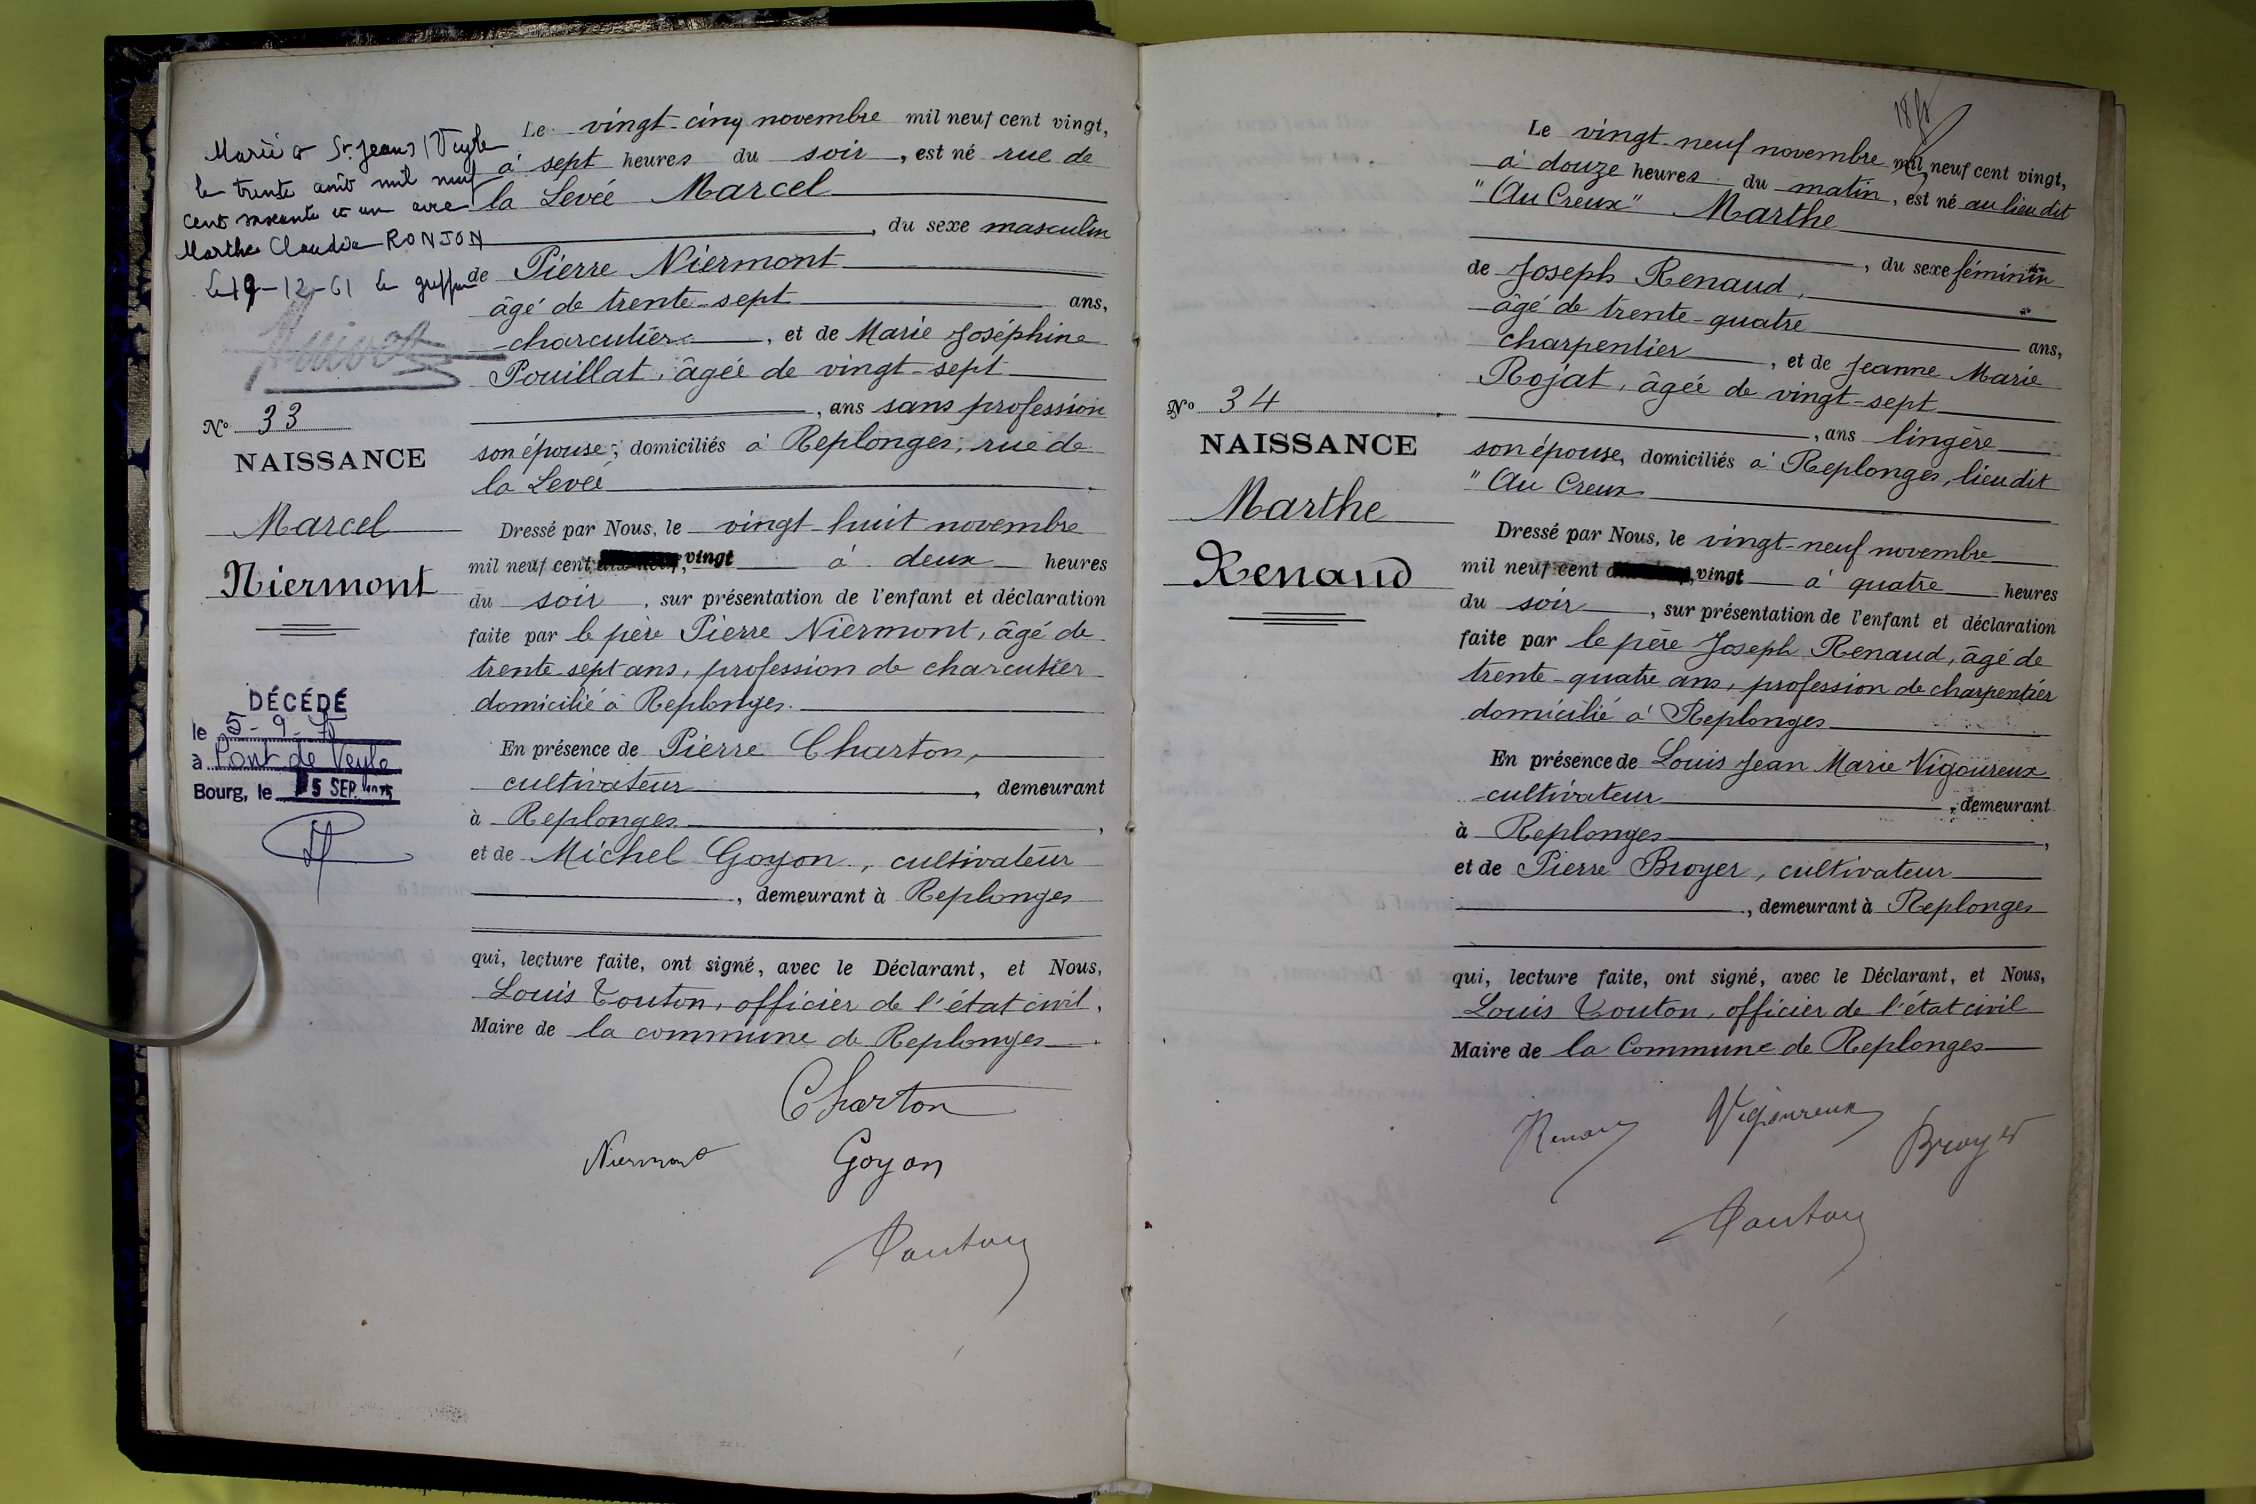 Marié à St Jean s/ Veyle
le trente août mil neuf
cent soixante et un avec
Marthe Claudia RONJON
Le 19-12-61 le greffier
N° 33
NAISSANCE
Marcel
Niermont
DÉCÉDÉ
le 5-9-75
à Pont de Veyle
Bourg, le 15 SEP. 1975
Le vingt-cinq novembre mil neuf cent vingt,
à sept heures du soir, est né rue de
la Levée Marcel
, du sexe masculin
de Pierre Niermont
âgé de trente-sept ans,
charcutier, et de Marie Joséphine
Pouillat, âgée de vingt-sept
, ans sans profession
son épouse; domiciliés à Replonges, rue de
la Levée
Dressé par Nous, le vingt-huit novembre
mil neuf cent vingt à deux heures
du soir, sur présentation de l'enfant et déclaration
faite par le père Pierre Niermont, âgé de
trente sept ans, profession de charcutier
domicilié à Replonges.
En présence de Pierre Charton,
cultivateur, demeurant
à Replonges,
et de Michel Goyon, cultivateur
, demeurant à Replonges
qui, lecture faite, ont signé, avec le Déclarant, et Nous,
Louis Touton, officier de l'état civil,
Maire de la commune de Replonges
Charton
Niermont Goyon
Touton
Le vingt-neuf novembre mil neuf cent vingt,
à douze heures du matin, est né au lieu dit
"Au Creux" Marthe
, du sexe féminin
de Joseph Renaud,
âgé de trente-quatre ans,
charpentier, et de Jeanne Marie
Rojat, âgée de vingt-sept
, ans lingère
son épouse, domiciliés à Replonges, lieu dit
"Au Creux
N° 34
NAISSANCE
Marthe
Renaud
Dressé par Nous, le vingt-neuf novembre
mil neuf cent vingt à quatre heures
du soir, sur présentation de l'enfant et déclaration
faite par le père Joseph Renaud, âgé de
trente-quatre ans, profession de charpentier
domicilié à Replonges
En présence de Louis Jean Marie Vigoureux
cultivateur, demeurant
à Replonges,
et de Pierre Broyer, cultivateur
, demeurant à Replonges
qui, lecture faite, ont signé, avec le Déclarant, et Nous,
Louis Touton, officier de l'état civil
Maire de la Commune de Replonges
Renaud Vigoureux Broyer
Touton